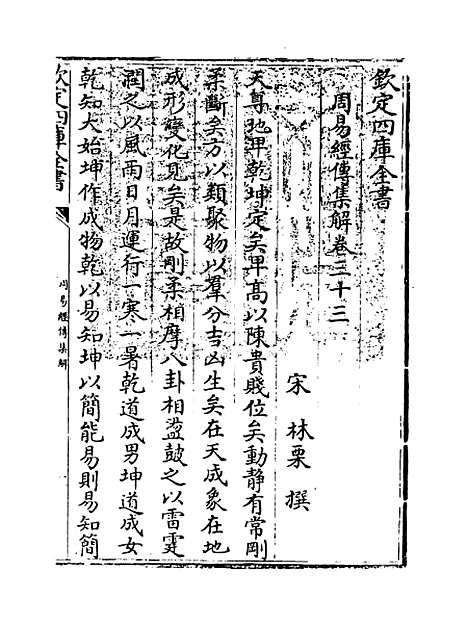 欽定四庫全書
周易經傳集解卷三十三
宋 林栗 撰
天尊地卑乾坤定矣卑高以陳貴賤位矣動静有常剛
柔斷矣方以類聚物以羣分吉凶生矣在天成象在地
成形變化見矣是故剛柔相摩八卦相盪鼓之以雷霆
潤之以風雨日月運行一寒一暑乾道成男坤道成女
乾知大始坤作成物乾以易知坤以簡能易則易知簡
欽定四庫全書
周易經傳集解